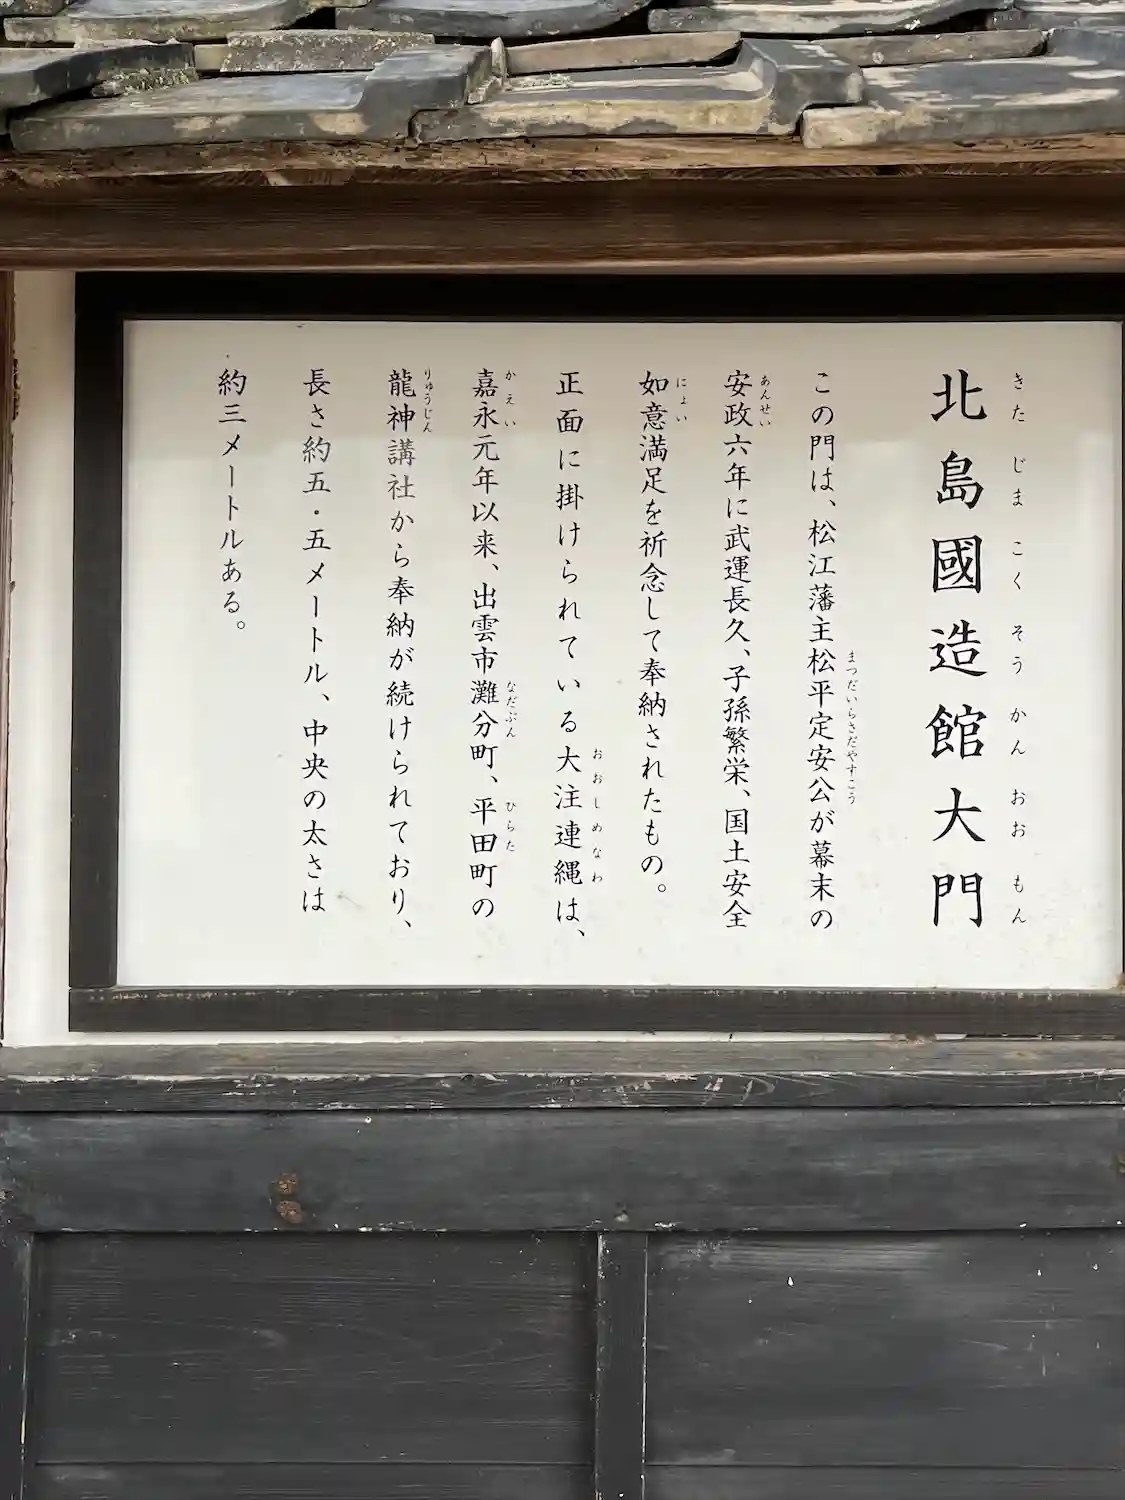 北島國造館大門
きたじまこくそうかんおおもん
この門は、松江藩主松平定安公が幕末の
まつだいらさだやすこう
安政六年に武運長久、子孫繁栄、国土安全
あんせい
如意満足を祈念して奉納されたもの。
にょい
正面に掛けられている大注連縄は、
おおしめなわ
嘉永元年以来、出雲市灘分町、平田町の
かえい なだぶん ひらた
龍神講社から奉納が続けられており、
りゅうじん
長さ約五・五メートル、中央の太さは
約三メートルある。